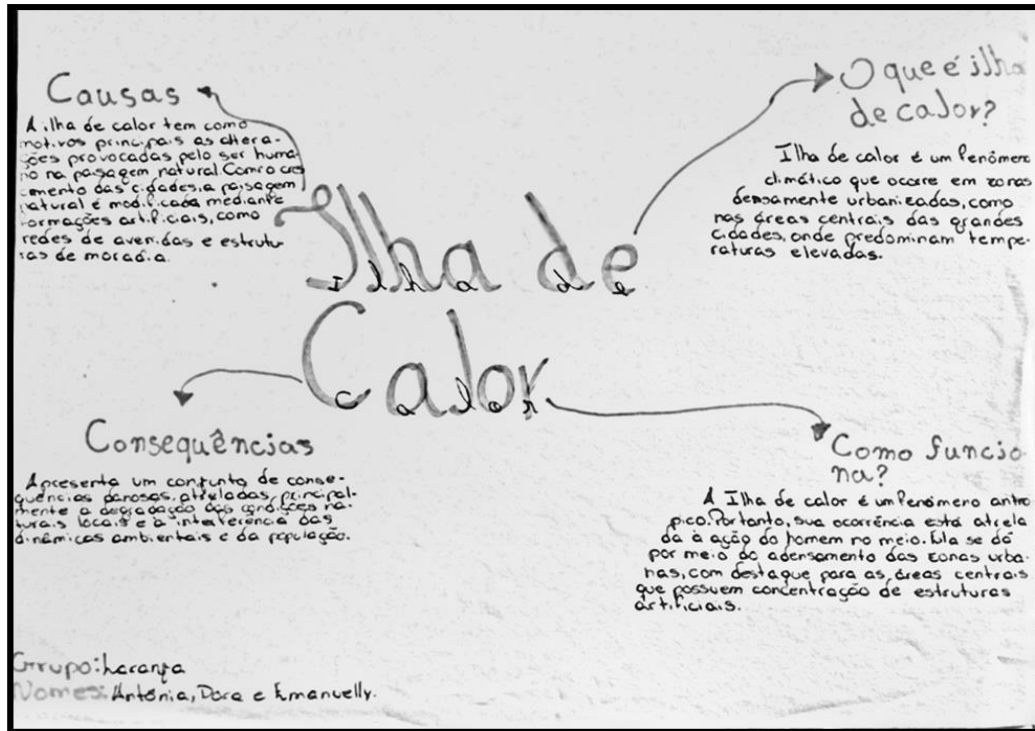 Ilha de
Calor
Causas
A ilha de calor tem como
motivos principais as altera-
ções provocadas pelo ser huma
no na paisagem natural. Com o cres
cimento das cidades, a paisagem
natural é modificada mediante
formações artificiais, como
redes de avenidas e estrutu-
ras de moradia.
O que é ilha
de calor?
Ilha de calor é um fenômeno
climático que ocorre em zonas
densamente urbanizadas, como
nas áreas centrais das grandes
cidades, onde predominam tempe-
raturas elevadas.
Consequências
Apresenta um conjunto de conse-
quências danosas, atreladas, principal-
mente a degradação das condições na-
turais locais e a interferência das
dinâmicas ambientais e da população.
Como funcio
na?
A Ilha de calor é um fenômeno antró
pico. Portanto, sua ocorrência está atrela
da à ação do homem no meio. Ela se dá
por meio do adensamento das zonas urba-
nas, com destaque para as áreas centrais
que possuem concentração de estruturas
artificiais.
Grupo: Laranja
Nomes: Antônia, Dora e Emanuelly.